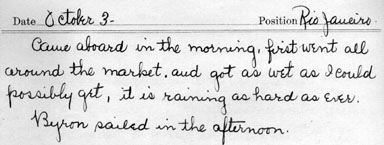 Date October 3- Position Rio Janeiro.
Came aboard in the morning, first went all
around the market. and got as wet as I could
possibly get, it is raining as hard as ever.
Byron sailed in the afternoon.